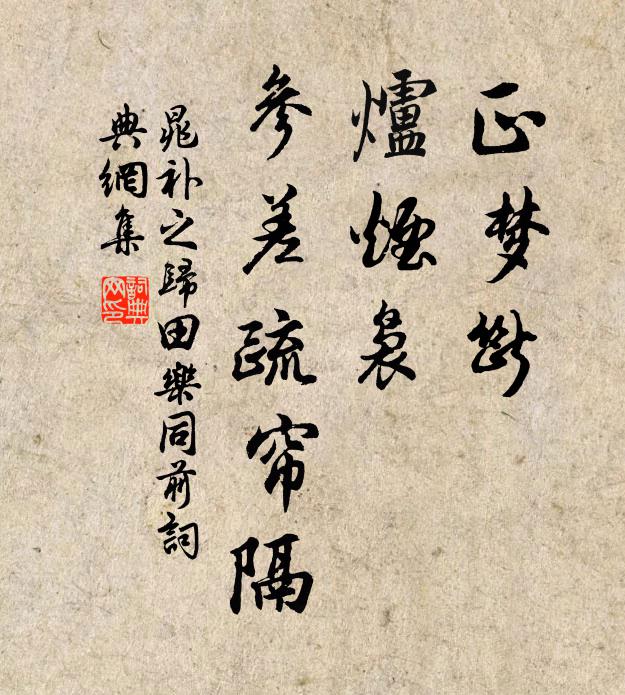 正梦断
爐煙裊
參差疏帘隔
晁补之歸田樂同前詞
典網集
詞典
网印